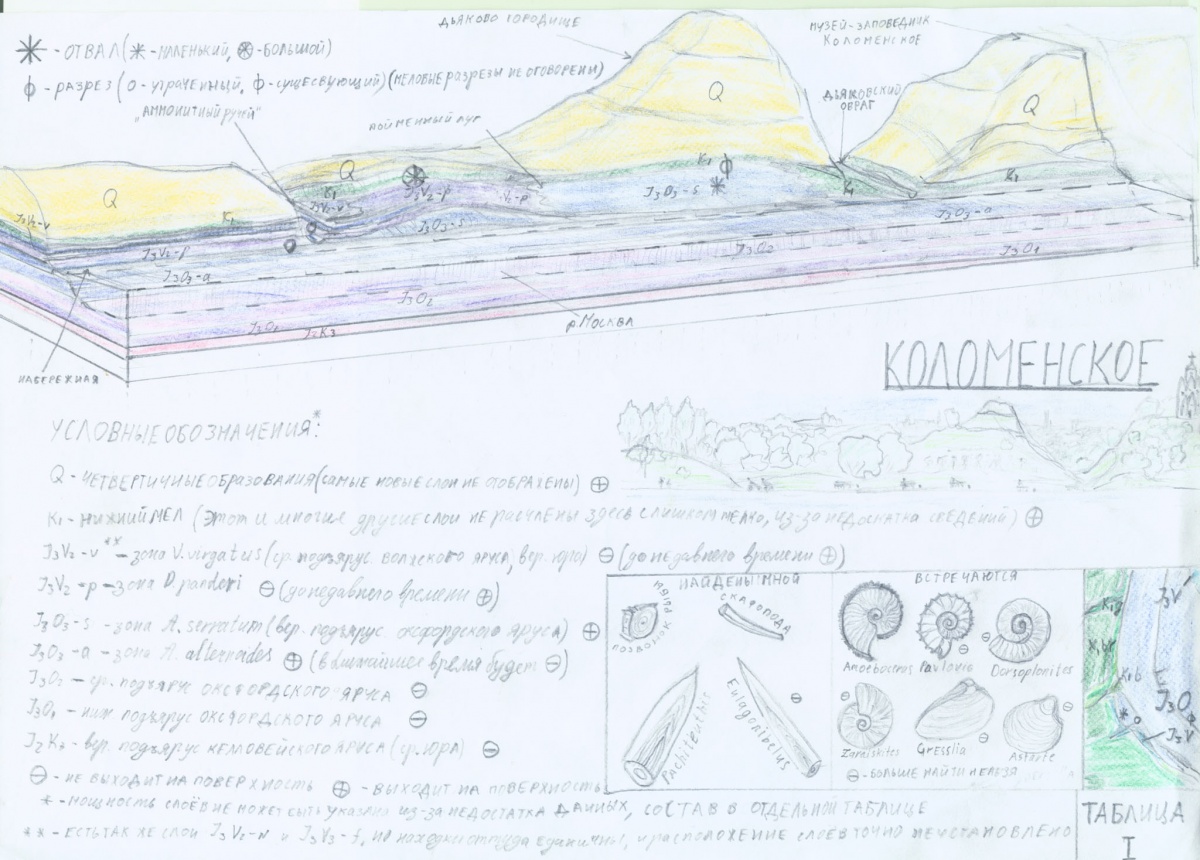 ✳ - ОТВАЛ (✳ - МАЛЕНЬКИЙ, ⊛ - БОЛЬШОЙ)
ф - РАЗРЕЗ (О - УТРАЧЕННЫЙ, ф - СУЩЕСВУЮЩИЙ) (МЕЛОВЫЕ РАЗРЕЗЫ НЕ ОГОВОРЕНЫ)
"АММОНИТНЫЙ РУЧЕЙ"
ПОЙМЕННЫЙ ЛУГ
ДЬЯКОВО ГОРОДИЩЕ
МУЗЕЙ-ЗАПОВЕДНИК
КОЛОМЕНСКОЕ
ДЬЯКОВСКИЙ
ОВРАГ
Q
Q
Q
Q
K₁
K₁
K₁
K₁
K₁
J₃V₂-v
J₃V₂-v
J₃V₂-p
J₃V₂-p
J₃O₃-s
J₃O₃-s
J₃O₃-a
J₃O₃-a
J₃O₂
J₃O₂
J₃O₁
J₃O₁
J₂K₃
НАБЕРЕЖНАЯ
р. МОСКВА
КОЛОМЕНСКОЕ
УСЛОВНЫЕ ОБОЗНАЧЕНИЯ*:
Q - ЧЕТВЕРТИЧНЫЕ ОБРАЗОВАНИЯ (САМЫЕ НОВЫЕ СЛОИ НЕ ОТОБРАЖЕНЫ) ⊕
K₁ - НИЖНИЙ МЕЛ (ЭТОТ И МНОГИЕ ДРУГИЕ СЛОИ НЕ РАСЧЛЕНЫ ЗДЕСЬ СЛИШКОМ МЕЛКО, ИЗ-ЗА НЕДОСТАТКА СВЕДЕНИЙ) ⊕
J₃V₂-v** - зона V. virgatus (ср. подъярус волжского яруса, вер. юра) ⊖ (до недавнего времени ⊕)
J₃V₂-p - зона D. panderi ⊖ (до недавнего времени ⊕)
J₃O₃-s - зона A. serratum (вер. подъярус оксфордского яруса) ⊕
J₃O₃-a - зона A. alternoides ⊕ (в ближайшее время будет ⊖)
J₃O₂ - ср. подъярус оксфордского яруса ⊖
J₃O₁ - ниж подъярус оксфордского яруса ⊖
J₂K₃ - вер. подъярус келловейского яруса (ср. юра) ⊖
⊖ - НЕ ВЫХОДИТ НА ПОВЕРХНОСТЬ ⊕ - ВЫХОДИТ НА ПОВЕРХНОСТЬ
* - МОЩНОСТЬ СЛОЁВ НЕ МОЖЕТ БЫТЬ УКАЗАНА ИЗ-ЗА НЕДОСТАТКА ДАННЫХ, СОСТАВ В ОТДЕЛЬНОЙ ТАБЛИЦЕ
** - ЕСТЬ ТАК ЖЕ СЛОИ J₃V₂-N и J₃V₃-f, НО НАХОДКИ ОТТУДА ЕДИНИЧНЫ, И РАСПОЛОЖЕНИЕ СЛОЁВ ТОЧНО НЕ УСТАНОВЛЕНО
НАЙДЕНЫ МНОЙ
ПОЗВОНОК
РЫБЫ
СКАФОПОДА
Pachiteuthis
Eulagonibelus
ВСТРЕЧАЮТСЯ
Amoeboceras
Pavlovia
Dorsoplanites
Zaraiskites
Gresslia
Astarte
⊖ - БОЛЬШЕ НАЙТИ НЕЛЬЗЯ
J₃V
K₁b
J₃O
J₃V
ТАБЛИЦА
I